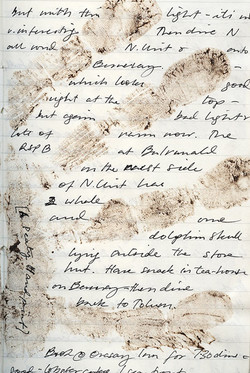 but with the light - it's
v. interesting Then drive N
all round N. Uist & onto
Berneray -
which looks good
right at the top -
but again bad light &
lots of rain now. The
RSPB at Balranald
on the west side
of N. Uist has
2 whale
and one
dolphin skull
lying outside the stone
hut. Have snack in tea-house
on Berneray then drive
back to Tolson.
Back @ Eriskay Inn for 7.30 dinner